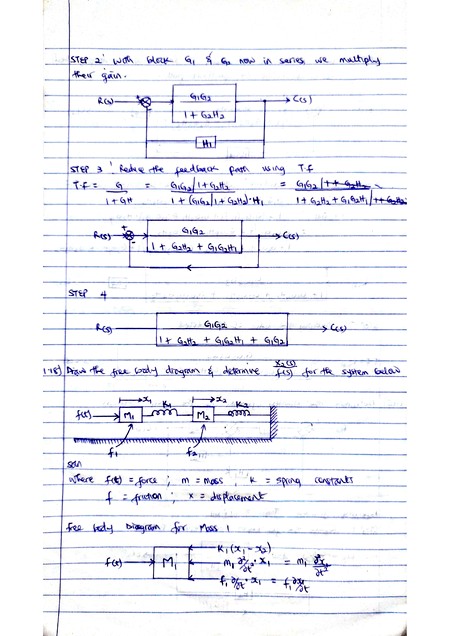 STEP 2: With block G1 & G2 now in series we multiply
their gain.
R(s) + G1G2 C(s)
1 + G2H2
H1
STEP 3: Reduce the feedback path using T.f
T.f = G = G1G2/1+G2H2 = G1G2/1+G2H2
1 + GH 1 + (G1G2/1+G2H2)·H1 1 + G2H2 + G1G2H1/1+G2H2
R(s) + G1G2 C(s)
- 1 + G2H2 + G1G2H1
STEP 4
R(s) G1G2 C(s)
1 + G2H2 + G1G2H1 + G1G2
1.18) Draw the free body diagram & determine X2(s)/f(s) for the system below
x1 K1 x2 K2
f(t) M1 M2
f1 f2
soln
Where f(t) = force ; m = mass , K = spring constants
f = friction ; x = displacement
free body Diagram for Mass 1
K1(x1 - x2)
f(t) M1 m1 ∂²/∂t² · x1 = m1 ∂²x1/∂t²
f1 ∂/∂t · x1 = f1 ∂x1/∂t